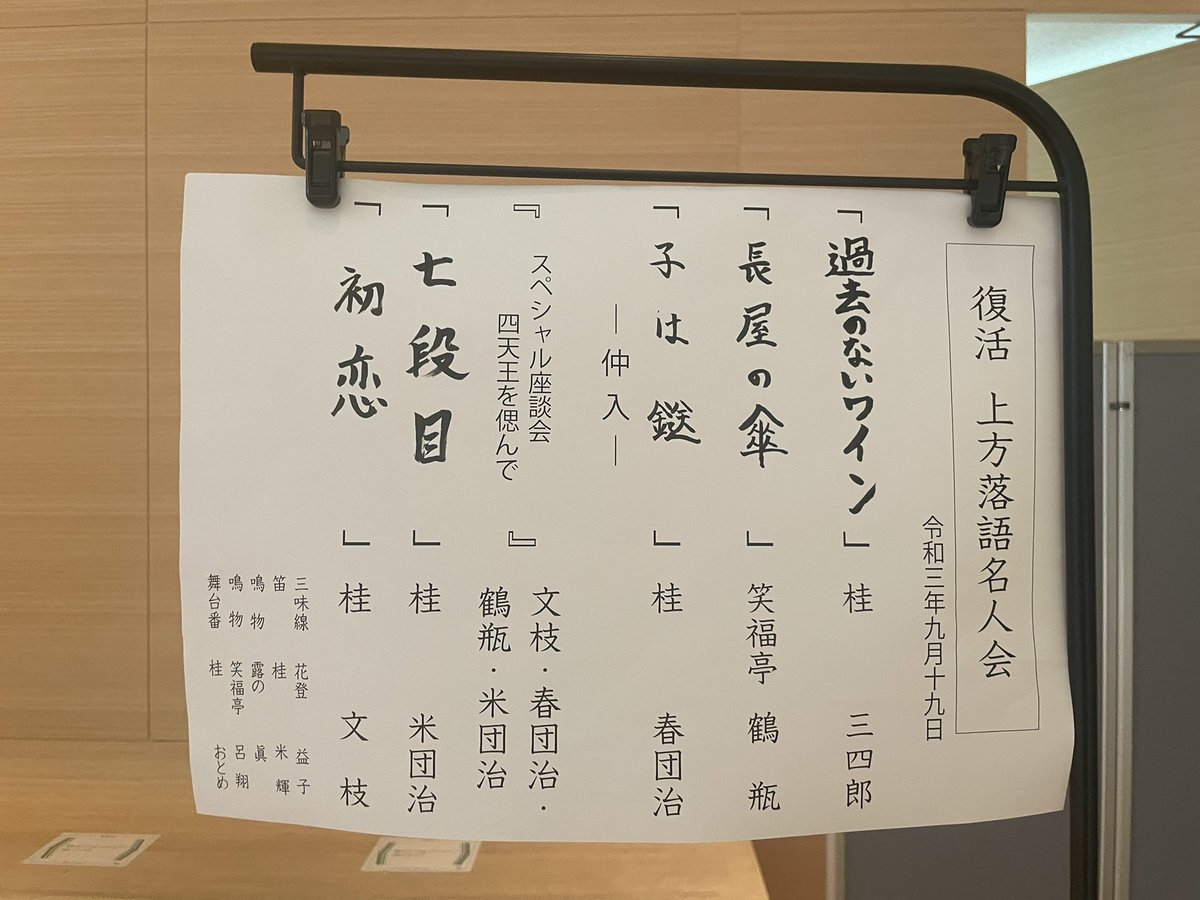 復活 上方落語名人会
令和三年九月十九日
「過去のないワイン」 桂 三四郎
「長屋の傘」 笑福亭 鶴瓶
「子は鎹」 桂 春団治
―仲入―
『スペシャル座談会
四天王を偲んで』
文枝・春団治・
鶴瓶・米団治
「七段目」 桂 米団治
「初恋」 桂 文枝
三味線 花登 益子
笛 桂 米輝
鳴物 露の 眞
鳴物 笑福亭 呂翔
舞台番 桂 おとめ